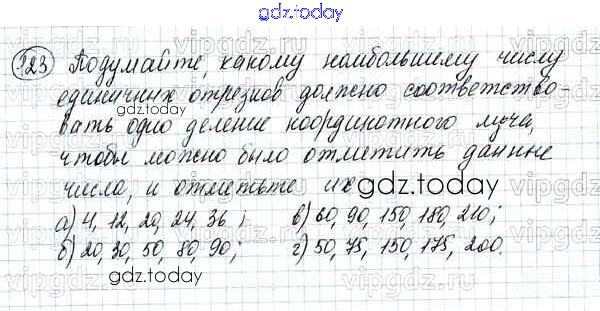 gdz.today
123 Подумайте, какому наибольшему числу
единичных отрезков должно соответство-
вать одно деление координатного луча,
чтобы можно было отметить данные
числа, и отметьте их
gdz.today
gdz.today
а) 4, 12, 20, 24, 36; в) 60, 90, 150, 180, 210;
б) 20, 30, 50, 80, 90; г) 50, 75, 150, 175, 200.
gdz.today